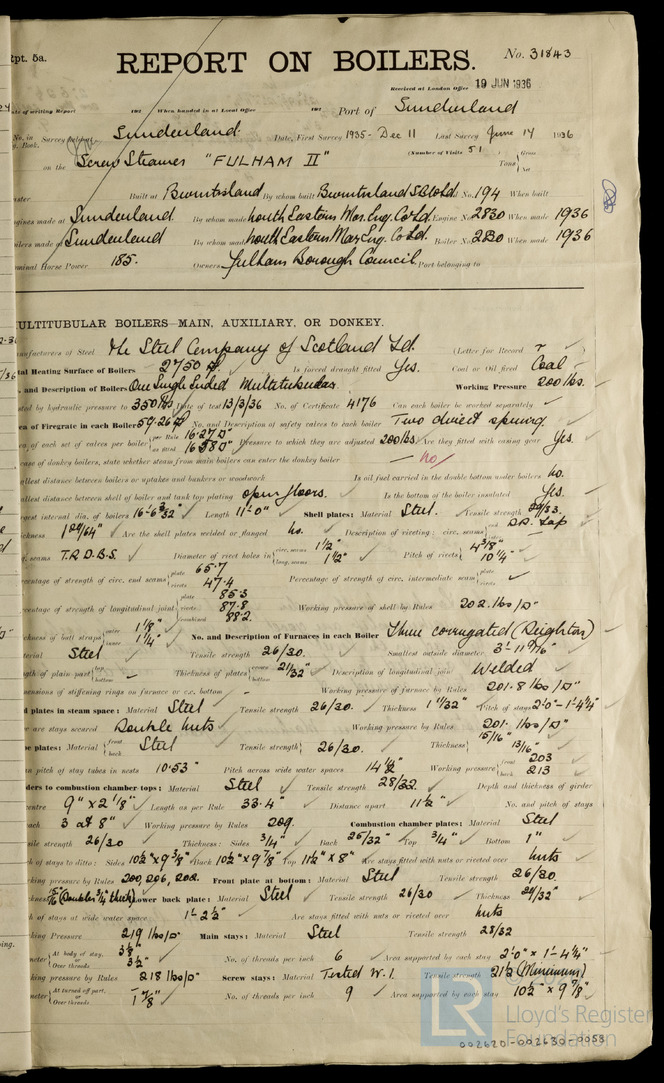 Rpt. 5a.
REPORT ON BOILERS.
No. 31843
Received at London Office 19 JUN 1936
of writing Report 19 When handed in at Local Office 19 Port of Sunderland
No. in Survey held at Sunderland Date, First Survey 1935 - Dec 11 Last Survey June 14 1936
Book.
on the Screw Steamer "FULHAM II" (Number of Visits 51) Gross Tons Net
Built at Burntisland By whom built Burntisland S.B.Co Ld. No. 194 When built
Engines made at Sunderland By whom made North Eastern Mar. Eng. Co Ld. Engine No. 2830 When made 1936
Boilers made at Sunderland By whom made North Eastern Mar Eng. Co Ld. Boiler No. 2830 When made 1936
Nominal Horse Power 185. Owners Fulham Borough Council Port belonging to
MULTITUBULAR BOILERS—MAIN, AUXILIARY, OR DONKEY.
Manufacturers of Steel The Steel Company of Scotland Ld. (Letter for Record
Total Heating Surface of Boilers 2750 Is forced draught fitted Yes. Coal or Oil fired Coal
No. and Description of Boilers One Single Ended Multitubular Working Pressure 200 lbs.
Tested by hydraulic pressure to 350 lbs Date of test 13/3/36 No. of Certificate 4176 Can each boiler be worked separately
Area of Firegrate in each Boiler 59.26 No. and Description of safety valves to each boiler Two direct spring
Area of each set of valves per boiler per Rule 16.27 as fitted 16.580 Pressure to which they are adjusted 200 lbs. Are they fitted with easing gear Yes.
In case of donkey boilers, state whether steam from main boilers can enter the donkey boiler no
Smallest distance between boilers or uptakes and bunkers or woodwork Is oil fuel carried in the double bottom under boilers no.
Smallest distance between shell of boiler and tank top plating open floors. Is the bottom of the boiler insulated Yes.
Largest internal dia. of boilers 16'-6 3/32" Length 11'-0" Shell plates: Material Steel. Tensile strength 29/33.
Thickness 1 29/64" Are the shell plates welded or flanged no. Description of riveting: circ. seams end D.R. Lap
long. seams T.R.D.B.S. Diameter of rivet holes in circ. seams 1 1/2" long. seams 1 1/2" Pitch of rivets 4 3/8" 10 1/4"
Percentage of strength of circ. end seams plate 65.7 rivets 47.4 Percentage of strength of circ. intermediate seam plate rivets
Percentage of strength of longitudinal joint plate 85.3 rivets 87.8 combined 88.2 Working pressure of shell by Rules 202. lbs/□"
Thickness of butt straps outer 1 1/8" inner 1 1/4" No. and Description of Furnaces in each Boiler Three corrugated (Deighton)
Material Steel Tensile strength 26/30. Smallest outside diameter 3'-11 9/16"
Length of plain part top bottom - Thickness of plates crown bottom 21/32" Description of longitudinal joint Welded
Dimensions of stiffening rings on furnace or c.c. bottom - Working pressure of furnace by Rules 201.8 lbs/□"
End plates in steam space: Material Steel Tensile strength 26/30. Thickness 1 11/32" Pitch of stays 2'-0" - 1'-4 1/4"
How are stays secured Double nuts Working pressure by Rules 201. lbs/□"
Tube plates: Material front back Steel Tensile strength 26/30. Thickness 15/16" 13/16"
Mean pitch of stay tubes in nests 10.53" Pitch across wide water spaces 14 1/2" Working pressure front 203 back 213
Girders to combustion chamber tops: Material Steel Tensile strength 28/32. Depth and thickness of girder
at centre 9" x 2 1/8" Length as per Rule 33.4" Distance apart 11 1/2" No. and pitch of stays
in each 3 at 8" Working pressure by Rules 209. Combustion chamber plates: Material Steel
Tensile strength 26/30 Thickness: Sides 3/4" Back 25/32" Top 3/4" Bottom 1"
Pitch of stays to ditto: Sides 10 1/2" x 9 3/8" Back 10 1/2" x 9 7/8" Top 11 1/2" x 8" Are stays fitted with nuts or riveted over nuts
Working pressure by Rules 200, 206, 202. Front plate at bottom: Material Steel Tensile strength 26/30.
Thickness 15/16" (Doubler 3/4" thick) Lower back plate: Material Steel Tensile strength 26/30 Thickness 29/32"
Pitch of stays at wide water space 1'-2 1/2" Are stays fitted with nuts or riveted over nuts
Working Pressure 219 lbs/□" Main stays: Material Steel Tensile strength 28/32
Diameter At body of stay, or Over threads 3 3/8" 3 1/2" No. of threads per inch 6 Area supported by each stay 2'-0" x 1'-4 1/4"
Working pressure by Rules 218 lbs/□" Screw stays: Material Tested W.I. Tensile strength 21 1/2 (Minimum)
Diameter At turned off part, or Over threads 1 7/8" No. of threads per inch 9 Area supported by each stay 10 1/2" x 9 7/8"
© 2021
LR
Lloyd's Register
Foundation
002620-002630-0058